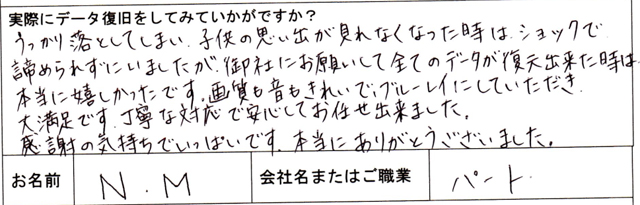 実際にデータ復旧をしてみていかがですか？
うっかり落としてしまい、子供の思い出が見れなくなった時は、ショックで
諦められずにいましたが、御社にお願いして全てのデータが復元出来た時は
本当に嬉しかったです。画質も音もきれいで、ブルーレイにしていただき
大満足です。丁寧な対応で安心してお任せ出来ました。
感謝の気持ちでいっぱいです。本当にありがとうございました。
お名前 N.M 会社名またはご職業 パート